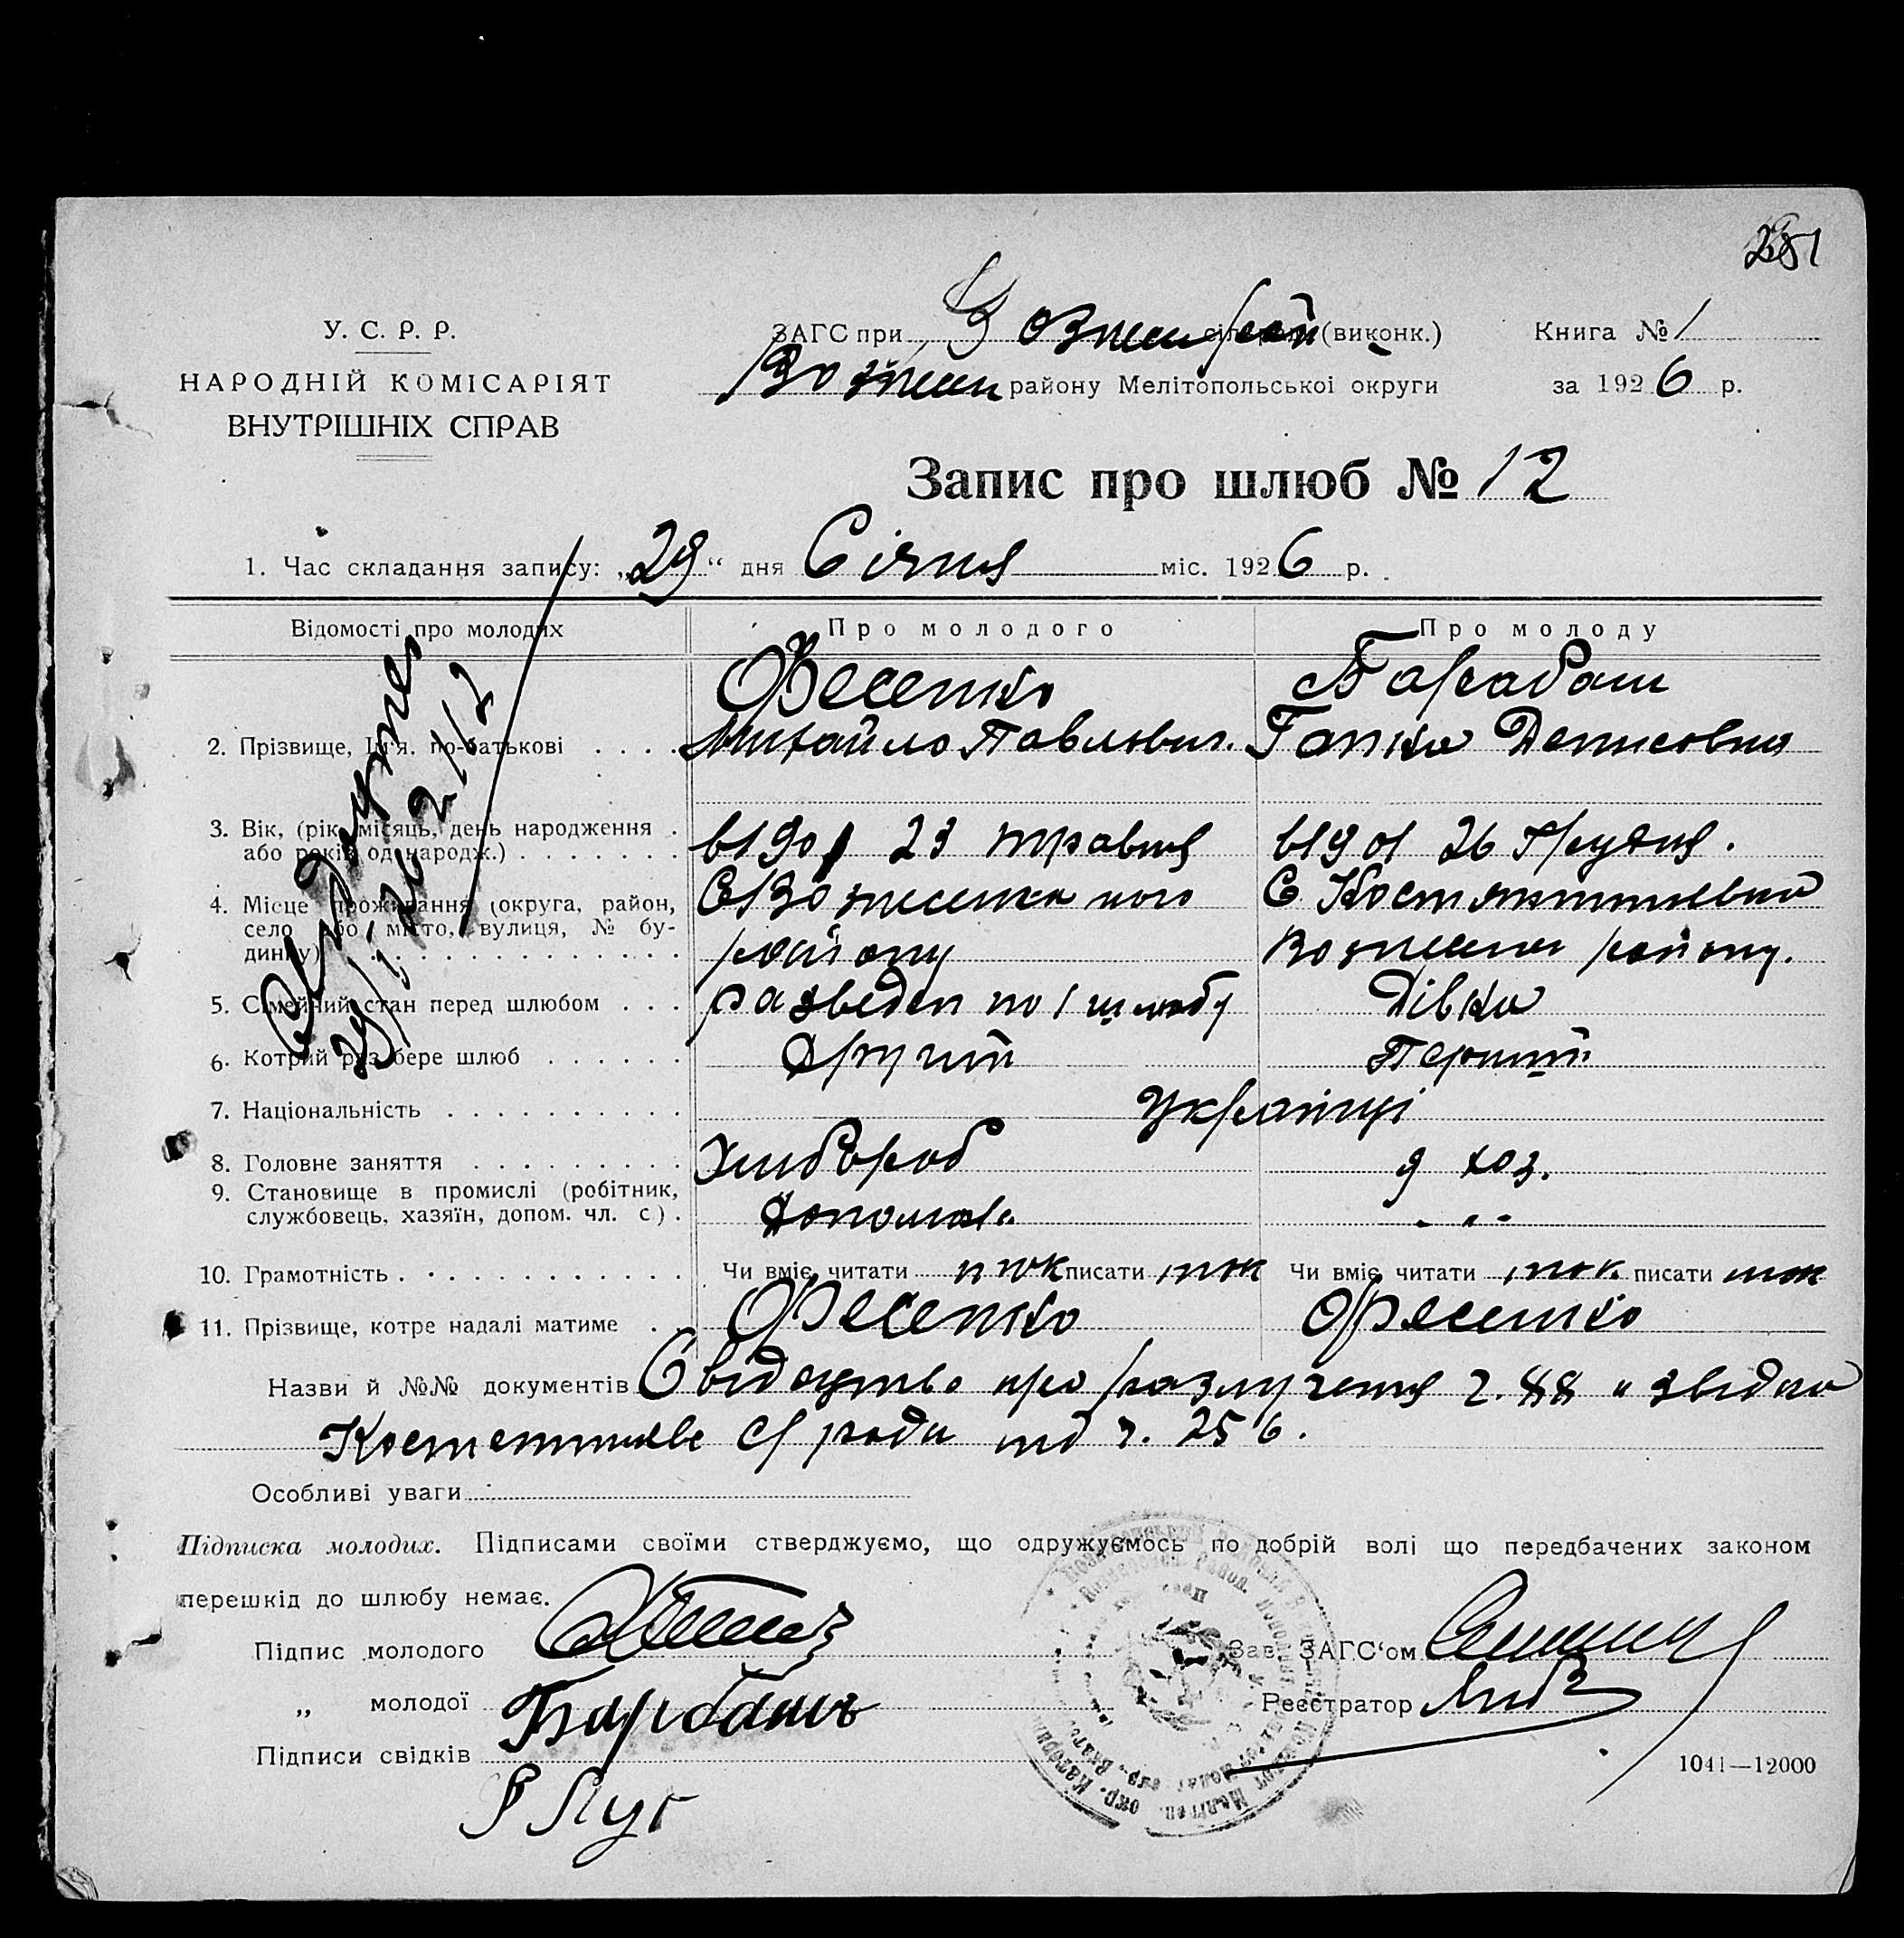 281
У. С. Р. Р.
НАРОДНІЙ КОМІСАРІЯТ
ВНУТРІШНІХ СПРАВ
ЗАГС при (виконк.)
Вознесен району Мелітопольської округи
Книга № 1
за 1926 р.
Запис про шлюб № 12
1. Час складання запису: „29“ дня Січня міс. 1926 р.
Відомості про молодих
Про молодого
Про молоду
2. Прізвище, Ім'я. по-батькові . . . .
Фесенко
Михайло Павлович.
Барабаш
Ганна Денисовна
3. Вік, (рік, місяць, день народження .
або років од народж.) . . . . . . .
в 1901 23 травня
в 1901 26 Грудня.
4. Місце проживання (округа, район,
село або місто, вулиця, № бу-
динку) . . . . . . . . . . . . . .
С Вознесенка ного
району
С Костянтиневка
Вознесен району.
5. Сімейний стан перед шлюбом . . .
разведен по 1 шлюбу
Дівка
6. Котрий раз бере шлюб . . . . . .
Другий
Перший
7. Національність . . . . . . . . . .
Українці
8. Головне заняття . . . . . . . . .
Хлибороб
д хоз.
9. Становище в промислі (робітник,
службовець, хазяїн, допом. чл. с.) .
- " -
10. Грамотність . . . . . . . . . . . .
Чи вміє читати так писати так
Чи вміє читати так писати так
11. Прізвище, котре надалі матиме . .
Фесенко
Фесенко
Назви й №№ документів Свідоцтво про разлучення ч. 88 и звідка
с/ ради під ч. 256.
Особливі уваги
Підписка молодих. Підписами своїми стверджуємо, що одружуємось по добрій волі що передбачених законом
перешкід до шлюбу немає.
Підпис молодого
Зав. ЗАГС‘ом
„ молодої Барабашь
Реєстратор
Підписи свідків
1041—12000